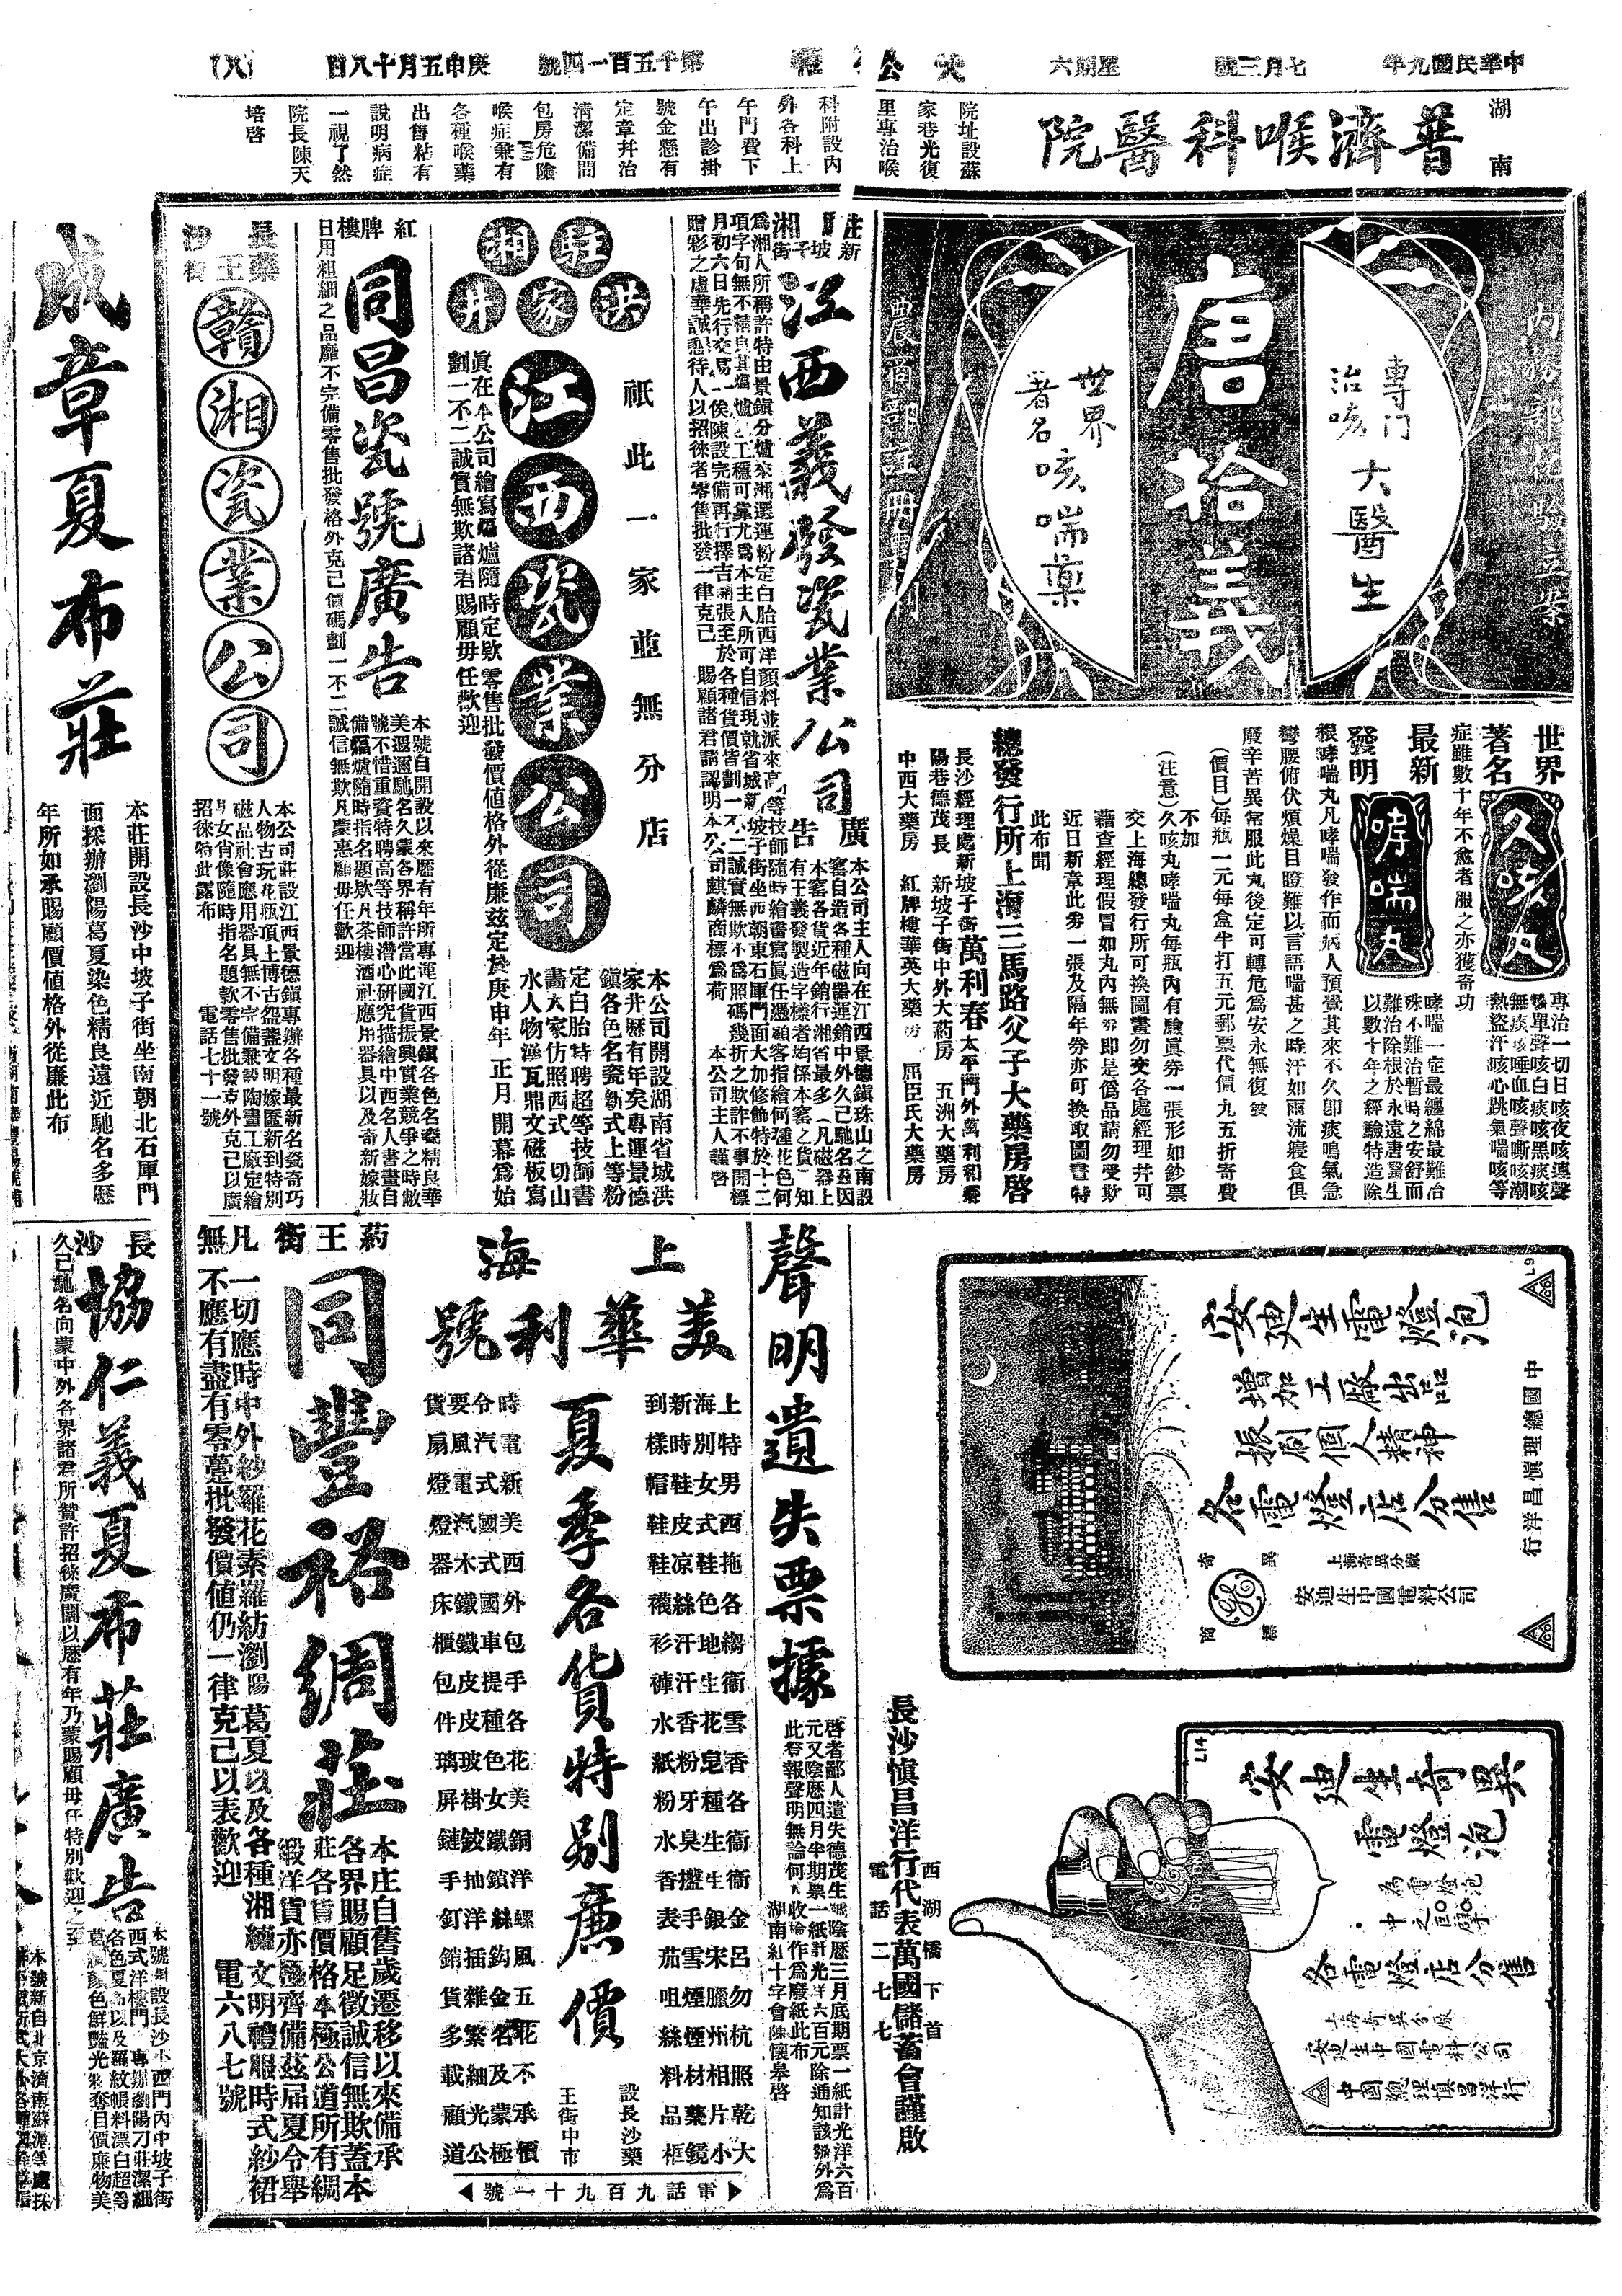 中華民國九年
七月三號
星期六
大公報
第千五百一四號
庚申五月十八日
(八)
湖南
普濟喉科醫院
院址設蘇
家巷光復
里專治喉
科附設內
外各科上
午門費下
午出診掛
號金懸有
定章幷治
清潔備問
包房危險
喉症兼有
各種喉藥
出售粘有
說明病症
一視了然
院長陳天
培啓
內務部批驗立案
專門
治咳
大醫生
唐拾義
世界
著名
咳喘藥
世界
著名
久咳丸
專治一切日咳夜咳連聲
咳單聲咳白痰咳黑痰咳
無痰咳唾血咳聲嘶咳潮
熱盜汗咳心跳氣喘咳等
症雖數十年不愈者服之亦獲奇功
最新
發明
哮喘丸
哮喘一症最纏綿最難治
殊不難治暫時之安舒而
難治除根於永遠唐醫生
以數十年之經驗特造除
根哮喘丸凡哮喘發作而病人預覺其來不久卽痰鳴氣急
彎腰俯伏煩燥目瞪難以言語喘甚之時汗如雨流寢食俱
廢辛苦異常服此丸後定可轉危爲安永無復發
(價目)每瓶一元每盒半打五元郵票代價九五折寄費
不加
(注意)久咳丸哮喘丸每瓶內有驗眞券一張形如鈔票
交上海總發行所可換圖畫勿交各處經理幷可
藉查經理假冒如丸內無券卽是僞品請勿受欺
近日新章此券一張及隔年券亦可換取圖畫特
此布聞
總發行所上海三馬路父子大藥房啓
長沙經理處新坡子街萬利春太平門外萬利和
陽巷德茂長 新坡子街中外大葯房 五洲大藥房
中西大藥房 紅牌樓華英大藥房 屈臣氏大藥房
新坡子街
江西義發瓷業公司廣告
本公司主人向在江西景德鎭珠山之南設
窰自造各種磁器運銷中外久已馳名茲因
本窰各貨近年銷行湘省最多(凡磁器上
有王義發製造字樣者均係本窰之貨)知
爲湘人所稱許特由景鎭分爐來湘選運粉定白胎西洋顏料並派來高等技師隨時繪畫寫眞任憑顧客指繪何種花色何
項字句無不精良其爐工穩可靠尤爲本主人所可自信現就省城新坡子街坐西朝東石庫門面大加修飾特於十二
月初六日先行交易一俟陳設完備再行擇吉開張至於各種貨價皆劃一不二誠實無欺不爲照碼幾折之欺詐不事開標
贈彩之虛華誠懇待人以招徠者零售批發一律克己 賜顧諸君請認明本公司麒麟商標爲荷 本公司主人謹啓
駐湘
洪家井
江西瓷業公司
祇此一家並無分店
本公司開設湖南省城洪
家井歷有年矣專運景德
鎭各色名瓷新式上等粉
定白胎特聘超等技師書
畵大家仿照西式一切山
水人物漢瓦鼎文磁板寫
眞在本公司繪寫爐隨時定欵零售批發價値格外從廉茲定於庚申年正月開幕爲始
劃一不二誠實無欺諸君賜顧毋任歡迎
紅牌樓
同昌瓷號廣告
本號自開設以來歷有年所專運江西景鎭各色名瓷精良華
美遐邇馳名久蒙各界稱許當此國貨振興實業競爭之時敝
號不惜重資特聘高等技師潛心研究描繪中西名人書畫自
備爐隨時指名題欵凡茶樓酒社應用器具以及奇新嫁妝
日用粗細之品靡不完備零售批發格外克己價碼劃一不二誠信無欺凡蒙惠顧毋任歡迎
長沙
藥王街
贛湘瓷業公司
本公司莊設江西景德鎭專辦各種最新名瓷奇巧
人物古玩花瓶項上博古盌盞文明嫁匳新到特別
磁品社會應用器具無不完備兼設陶畫工廠定繪
男女肖像隨時指名題欵零售批發克外克己以廣
招徠特此露布
電話七十一號
成章夏布莊
本莊開設長沙中坡子街坐南朝北石庫門
面採辦瀏陽葛夏染色精良遠近馳名多歷
年所如承賜顧價値格外從廉此布
安迪生電燈泡
增加工廠出品
振刷個人精神
各電燈店分售
奇異
商標
上海奇異分廠
安迪生中國電料公司
中國總理愼昌洋行
L9
L14
安迪生奇異
電燈泡
爲電燈泡
中之巨擘
各電燈店分售
上海奇異分廠
安迪生中國電料公司
中國總理愼昌洋行
長沙愼昌洋行代表萬國儲蓄會謹啟
西湖橋下首
電話二七七
聲明遺失票據
啓者鄙人遺失德茂生號陰歷三月底期票一紙計光洋六百
元又陰歷四月半期票一紙計光洋六百元除通知該號外爲
此登報聲明無論何人收論作爲廢紙此布
湖南紅十字會陳懷皋啓
上海
美華利號
夏季各貨特別廉價
上海新到
特別時樣
男女鞋帽
西式皮鞋
拖鞋凉鞋
各色絲襪
縐地汗衫
衞生汗褲
雪花香水
香皂粉紙
各種牙粉
衞生臭水
衞生盥香
金銀手表
呂宋雪茄
勿臘煙咀
杭州煙絲
照相材料
乾片藥品
大小鏡框
時令要貨
電汽風扇
新式電燈
美國汽燈
西式木器
外國鐵床
包車鐵櫃
手提皮包
各種皮件
花色玻璃
美女掛屏
銅鐵鉸鏈
洋鎖抽手
螺絲洋釘
風鈎插銷
五金雜貨
花名繁多
不及細載
承蒙光顧
價極公道
設長沙藥
王街中市
電話九百九十一號
葯王街
同豐裕綢莊
本庄自舊歲遷移以來備承
各界賜顧足徵誠信無欺蓋本
莊各貨價格本極公道所有綢
緞洋貨亦極齊備茲屆夏令舉
凡一切應時中外紗羅花素羅紡瀏陽葛夏以及各種湘繡文明禮服時式紗裙
無不應有盡有零躉批發價値仍一律克己以表歡迎 電六八七號
長沙
協仁義夏布莊廣告
本號開設長沙小西門內中坡子街
西式洋樓門 專辦瀏陽刀莊潔細
各色夏布以及羅紋帳料漂白超等
顏色鮮艷光彩奪目價廉物美
久已馳名向蒙中外各界諸君所贊許招徠廣闊以歷有年乃蒙賜顧毋任特別歡迎之至
本號新自北京濟南蘇源等處採